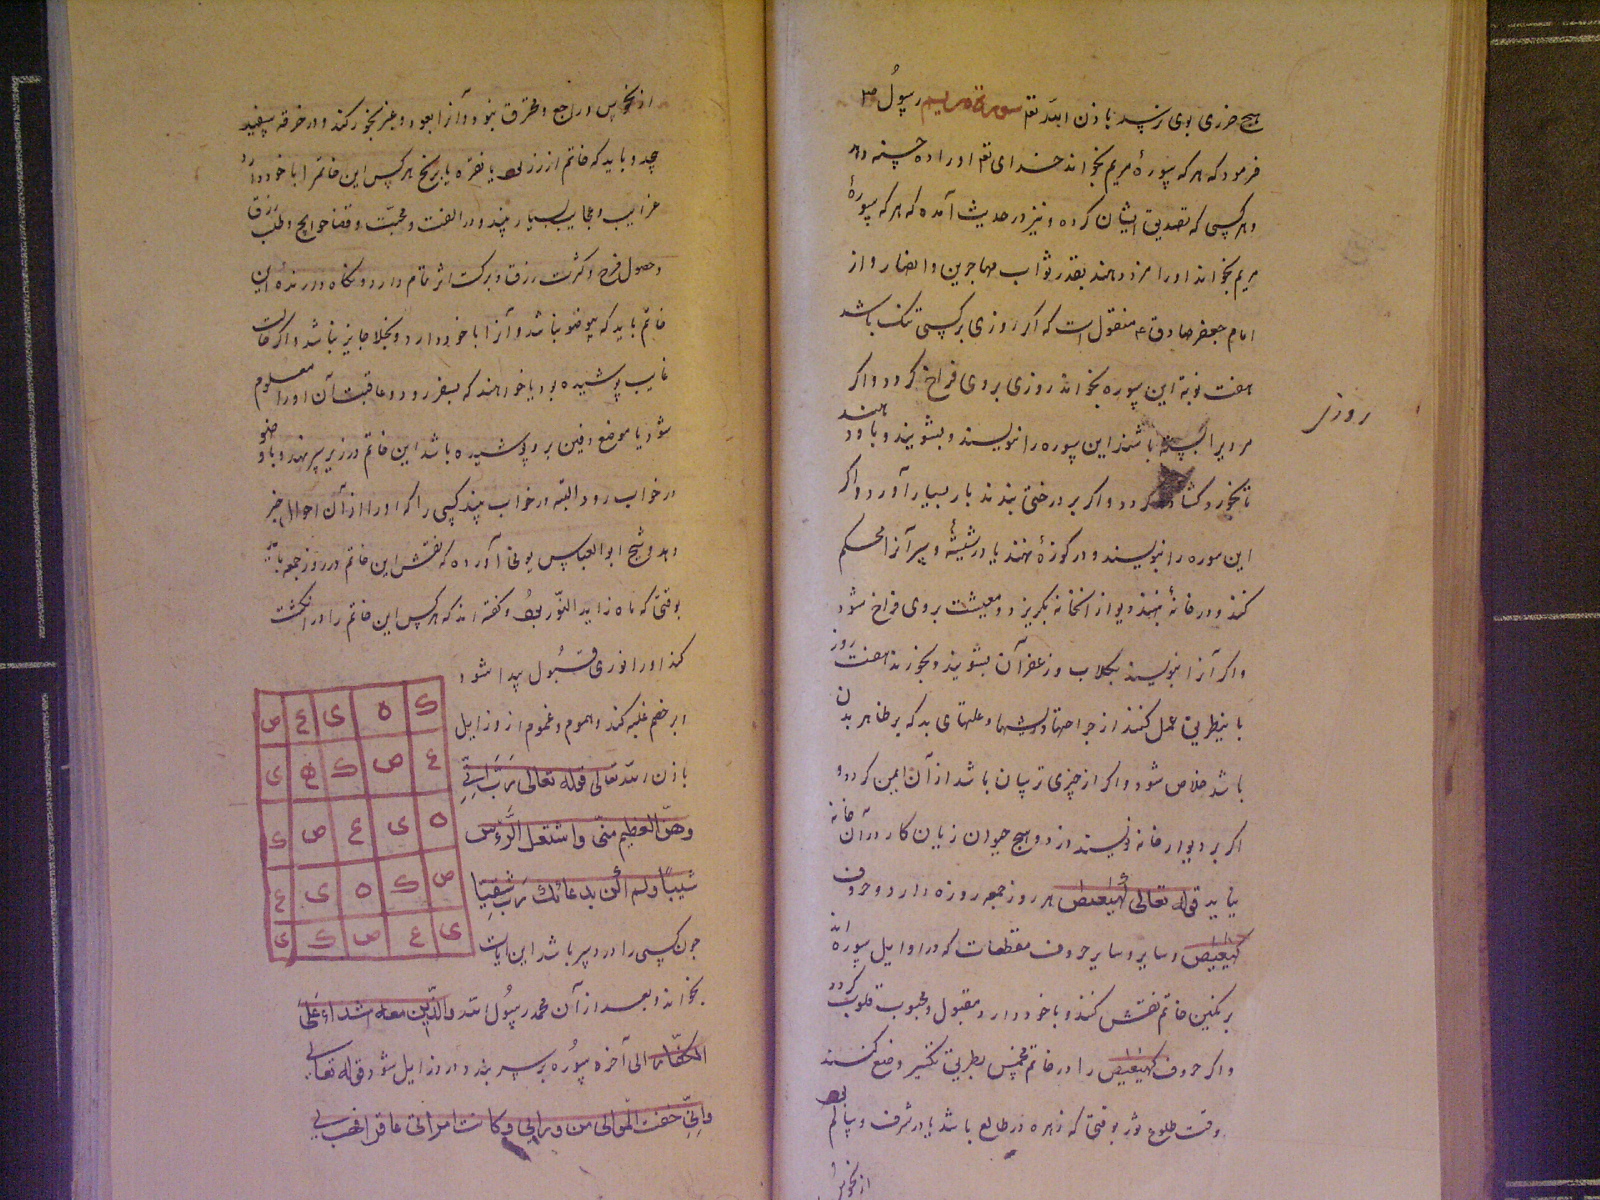 هیچ ضرری بوی نرسد باذن الله تعم سورة مریم رسول ص
فرمود که هر که سورهٔ مریم بخواند خدای تعم او را ده حسنه دهد
و هر کسی که تصدیق ایشان کرده و نیز در حدیث آمده که هر که سورهٔ
مریم بخواند او را مزد دهند بقدر ثواب مهاجرین و انصار و از
امام جعفر صادق ع منقول است که اگر روزی بر کسی تنک باشد
هفت نوبة این سوره بخواند روزی بروی فراخ کردد و اکر
روزی
مردیرا بسته باشند این سوره را بنویسند و بشویند و باو دهند
تا بخورد کشاده کردد و اکر بر درختی بندند بار بسیار آورد و اکر
این سوره را بنویسند و در کوزهٔ نهند یا در شیشهٔ و سر آنرا محکم
کنند و در خانهٔ بنهند دیو از انخانه بکریزد و معیشت بروی فراخ شود
و اکر آنرا بنویسند بکلاب و زعفران بشویند و بخورند هفت روز
باینطریق عمل کنند از جراحتها و ریشها و علتهای بد که بر ظاهر بدن
باشد خلاص شود و اکر از چیزی ترسان باشد از آن ایمن کردد و
اکر بر دیوار خانه نویسند دزد و هیچ حیوان زیان کار در آن خانه
نیاید قوله تعالی کهیعص هر روز جمعه روزه دارد و حروف
کهیعص و سایر و سایر حروف مقطعات که در اوایل سوراند
بر نکین خاتم نقش کنند و با خود دارد مقبول و محبوب قلوب کردد
و اکر حروف کهیعص را در خاتم مخمس بطریق تکسیر وضع کنند
وقت طلوع ثور بوقتی که زهره در طالع باشد یا در شرف و سالم بود
از نحوس
از نحوس و راجع و محترق نبود و آنرا بعود و عنبر بخور کند و در خرقه سفید
پیچد و باید که خاتم از زر بود یا نقره یا برنج هر کس این خاتم را با خود دارد
غرایب و عجایب بسیار بیند و در الفت و محبت و قضا حوایج و طلب رزق
و حصول فرح و کثرت رزق و برکت اثر تمام دارد و نکاه دارندهٔ این
خاتم باید که بیوضو نباشد و آنرا با خود دارد و بخلا جایز نباشد و اکر حالت
غایب پوشیده بود یا خواهند که بسفر رود و عاقبت آن او را معلوم
شود یا موضع دفین برو پوشیده باشد این خاتم در زیر سر نهند و با وضو
در خواب رود البته در خواب بیند کسی را که او را از آن احوال خبر
دهد و شیخ ابو العباس بونی آورده که نقش این خاتم در روز جمعه باید
بوقتی که ماه زاید النور بود و کفته اند که هر کس این خاتم را در انکشت
کند او را نوری و قبول پیدا شود
ابر خصم غلبه کند و هموم و غموم ازو زایل
باذن الله تعالی قوله تعالی رب انی
وهن العظم منی واشتعل الرأس
شیبا ولم اکن بدعائک رب شقیا
چون کسی را درد سر باشد این ایات
بخواند و بعد از آن محمد رسول الله والذین معه اشداء علی
الکفار الی آخره سوره بر سر بندد درد زایل شود قوله تعالی
وانی خفت الموالی من ورائی وکانت امراتی عاقرا فهب لی
ک ه ی ع ص
ع ص ک ه ی
ه ی ع ص ک
ص ک ه ی ع
ی ع ص ک ی